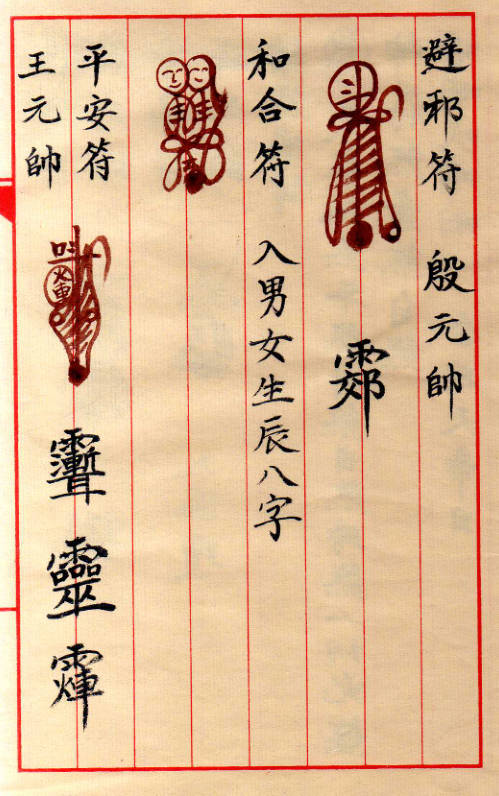 避邪符 殷元帥
和合符 入男女生辰八字
平安符
靈
王元帥